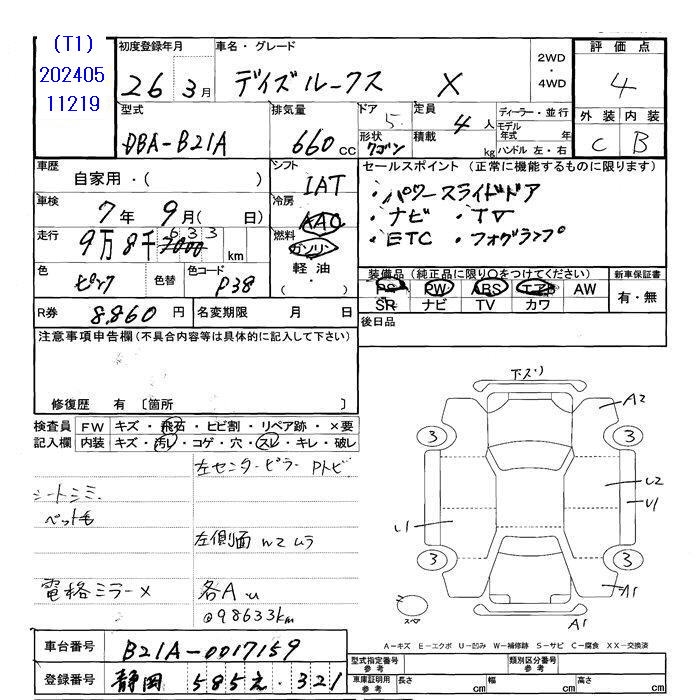 (T1)
202405
11219
初度登録年月
26 3月
車名・グレード
デイズルークス X
2WD
・
4WD
評価点
4
外装 内装
C B
型式
DBA-B21A
排気量
660cc
ドア
5
形状
ワゴン
定員
4人
積載
kg
ディーラー・並行
モデル
年式 年
ハンドル 左・右
車歴
自家用・( )
車検
7年 9月( 日)
走行
9万8千633km
色
ピンク
色替
色コード
P38
シフト
IAT
冷房
AAC
燃料
ガソリン
軽油
・( )
セールスポイント(正常に機能するものに限ります)
・パワースライドドア
・ナビ ・TV
・ETC ・フォグランプ
装備品(純正品に限り○をつけてください)
PS PW ABS エアB AW
SR ナビ TV カワ
新車保証書
有・無
R券 8,860円
名変期限 月 日
後日品
注意事項申告欄(不具合内容等は具体的に記入して下さい)
修復歴 有〔箇所
検査員
記入欄
FW キズ・飛石・ヒビ割・リペア跡・×要
内装 キズ・汚れ・コゲ・穴・スレ・キレ・破レ
左センターピラー Pトビ
シートシミ
ペット毛
左側面 W2ムラ
電格ミラー×
各A u
@98633km
下ズリ
A2
3
3
U2
U1
U1
3
3
A1
スペア
A1
A-キズ E-エクボ U-凹み W-補修跡 S-サビ C-腐食 XX-交換済
車台番号 B21A-0017159
登録番号 静岡 585 え・321
型式指定番号
参考
類別区分番号
参考
車庫証明用
参考
長さ cm
幅 cm
高さ cm